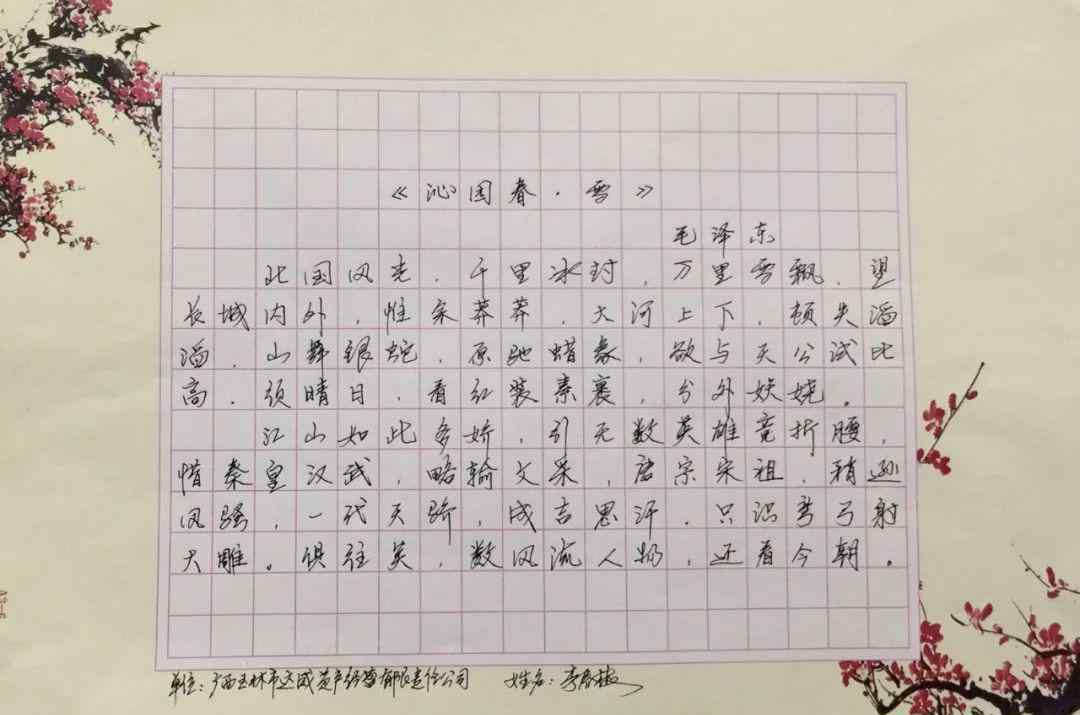 《沁园春·雪》
毛泽东
北国风光，千里冰封，万里雪飘，望
长城内外，惟余莽莽，大河上下，顿失滔
滔，山舞银蛇，原驰蜡象，欲与天公试比
高，须晴日，看红装素裹，分外妖娆。
江山如此多娇，引无数英雄竞折腰，
惜秦皇汉武，略输文采，唐宗宋祖，稍逊
风骚，一代天骄，成吉思汗，只识弯弓射
大雕。俱往矣，数风流人物，还看今朝。
单位：广西玉林市资产经营有限责任公司 姓名：李